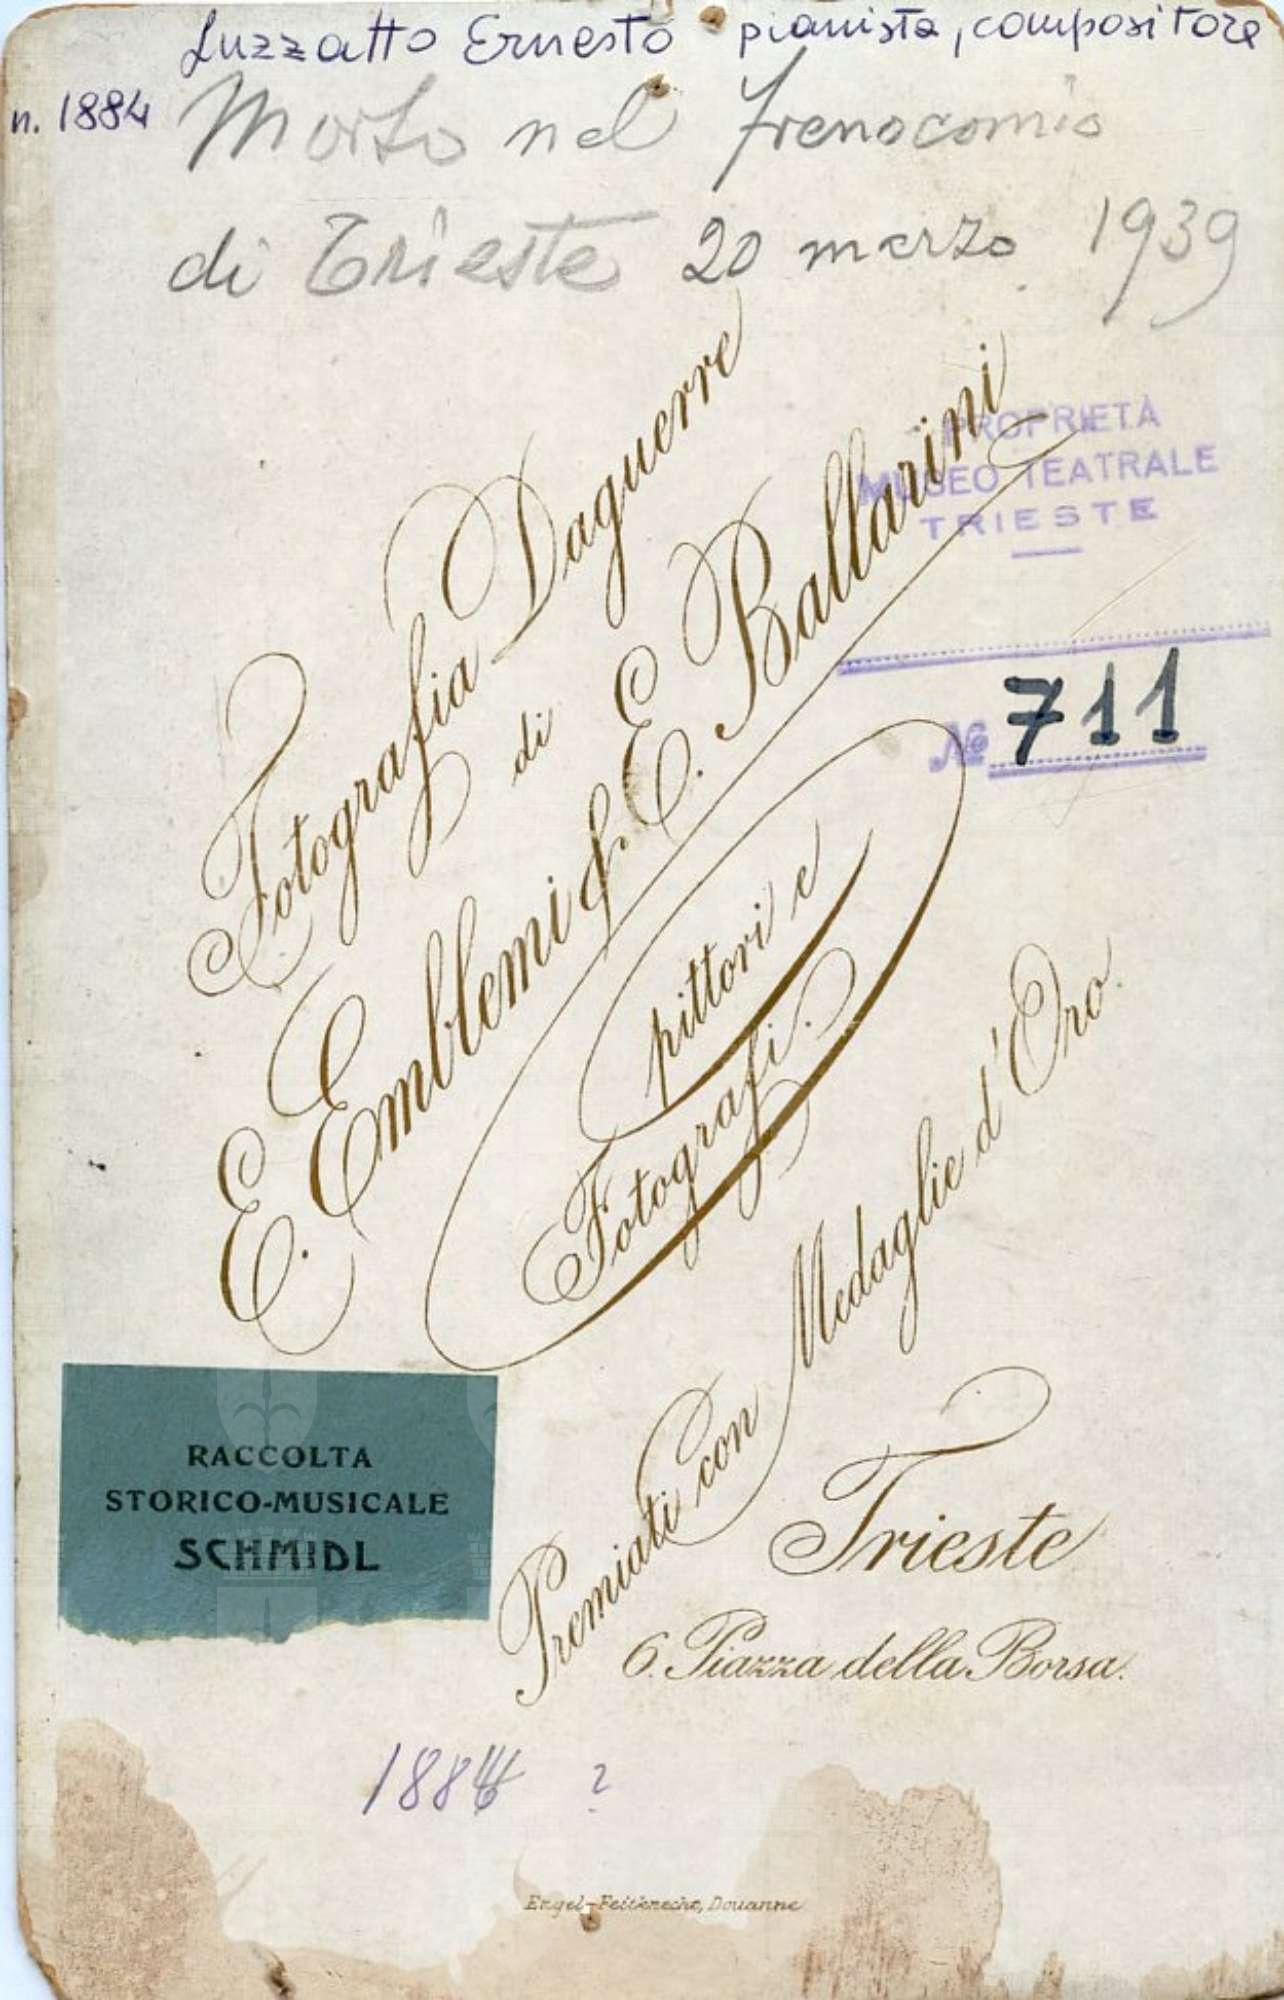 Luzzatto Ernesto pianista, compositore
n. 1884
Morto nel frenocomio
di Trieste 20 marzo 1939
Fotografia Daguerre
di
E. Emblemi & E. Ballarini
pittori e
Fotografi.
Premiati con Medaglie d'Oro.
Trieste
6. Piazza della Borsa.
PROPRIETÀ
MUSEO TEATRALE
TRIESTE
№ 711
RACCOLTA
STORICO-MUSICALE
SCHMIDL
1884 ?
Engel-Feitknecht, Douanne